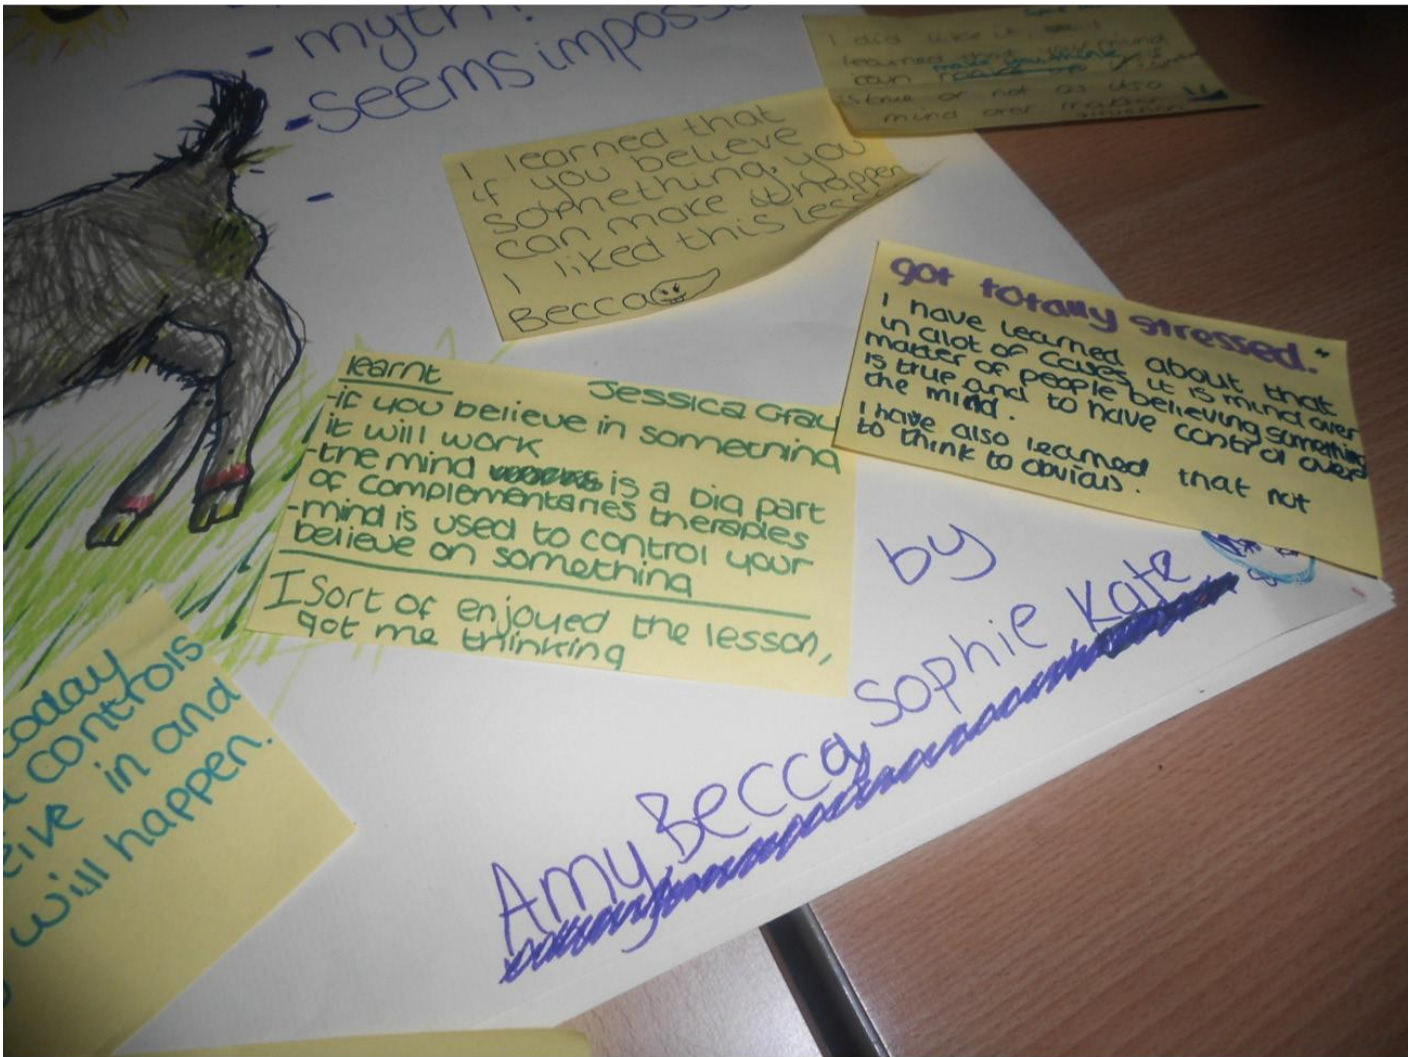 - myth?
- seems imposs
-
I did like it.
learned that your mind
can make you think
is true or not as its
mind over matter
I learned that
if you believe
something, you
can make it happen
I liked this less
Becca
got totally stressed.
I have learned about that
in alot of cases it is mind over
matter of people believing something
is true and to have control over
the mind.
I have also learned that not
to think to obvious.
learnt
Jessica Gray
-if you believe in something
it will work
-the mind is a big part
of complementaries therapies
-mind is used to control your
believe on something
I Sort of enjoyed the lesson,
got me thinking
today
controls
eive in and
will happen.
by
Amy, Becca, Sophie, Kate